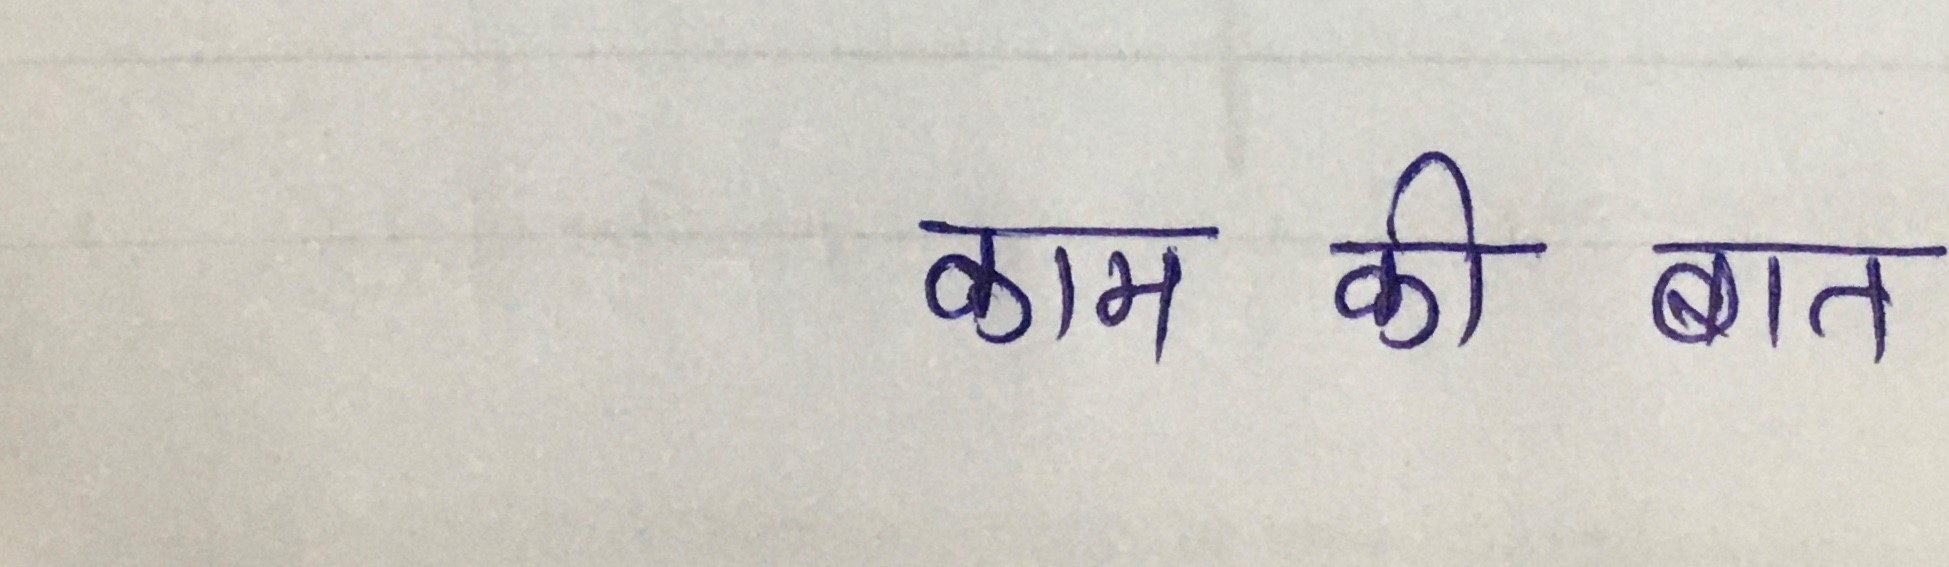 काम की बात